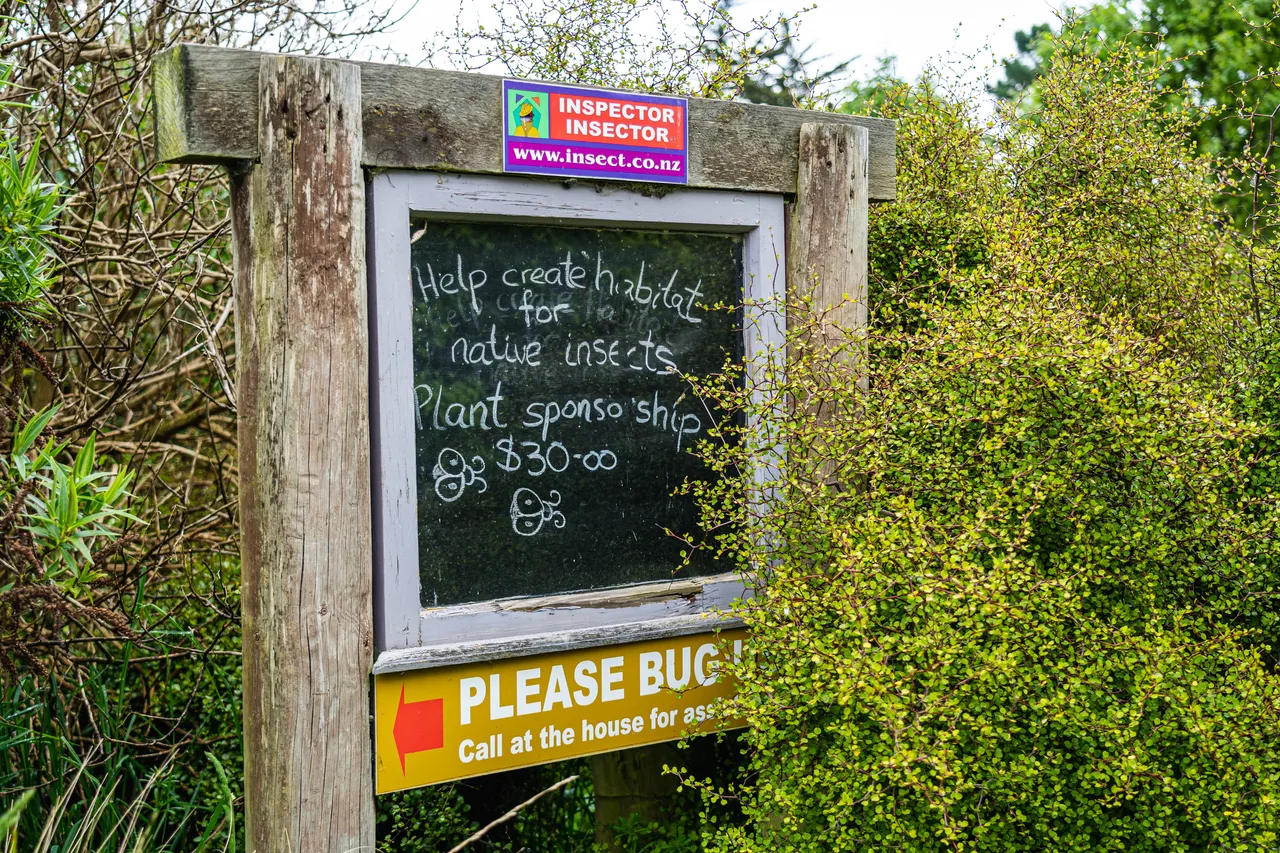 INSPECTOR
INSECTOR
www.insect.co.nz
Help create habitat
for
native insects
Plant sponso ship
$30-00
PLEASE BUG
Call at the house for